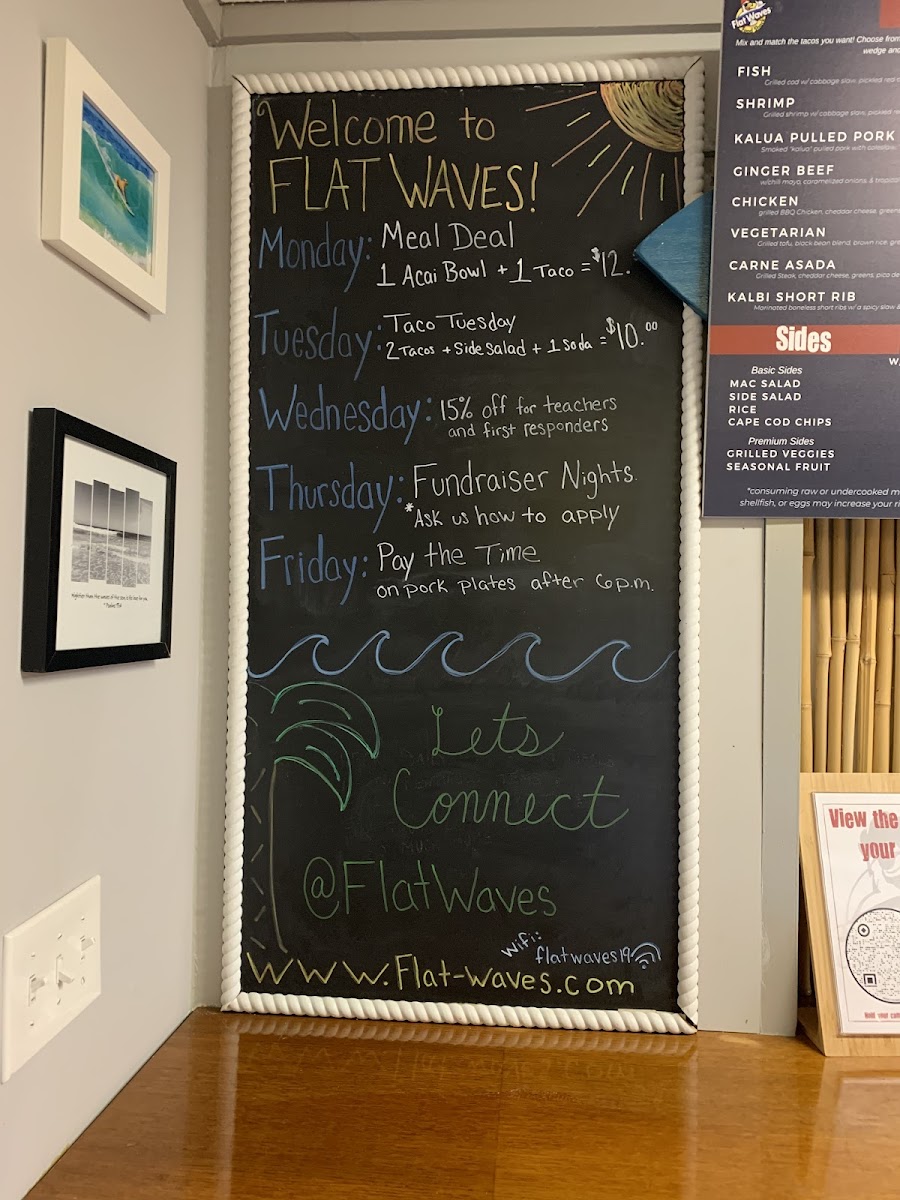 Welcome to
FLAT WAVES!
Monday: Meal Deal
1 Acai Bowl + 1 Taco = $12.
Tuesday: Taco Tuesday
2 Tacos + Side Salad + 1 Soda = $10.00
Wednesday: 15% off for teachers
and first responders
Thursday: Fundraiser Nights
*Ask us how to apply
Friday: Pay the Time
on pork plates after 6 p.m.
Lets
Connect
@FlatWaves
wifi: flatwaves19
www.Flat-waves.com
Flat Waves
Mix and match the tacos you want! Choose from
wedge and
FISH
Grilled cod w/ cabbage slaw, pickled red
SHRIMP
Grilled shrimp w/ cabbage slaw, pickled
KALUA PULLED PORK
Smoked "kalua" pulled pork with
GINGER BEEF
w/chili mayo, caramelized onions, &
CHICKEN
grilled BBQ Chicken, cheddar cheese, greens
VEGETARIAN
Grilled tofu, black bean blend, brown rice,
CARNE ASADA
Grilled Steak, cheddar cheese, greens, pico de
KALBI SHORT RIB
Marinated boneless short ribs w/ a spicy slaw &
Sides
Basic Sides
MAC SALAD
SIDE SALAD
RICE
CAPE COD CHIPS
Premium Sides
GRILLED VEGGIES
SEASONAL FRUIT
*consuming raw or undercooked
shellfish, or eggs may increase your
View the
your